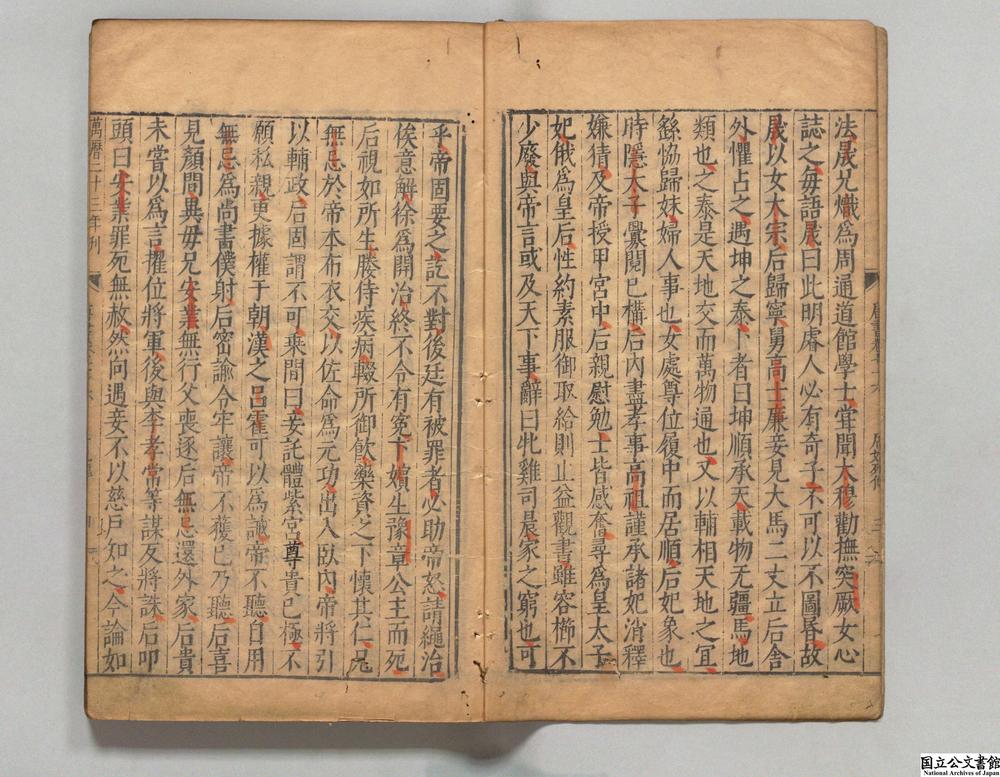 法晟兄熾為周通道館學士嘗聞太穆勸撫突厥女心
誌之每語晟曰此明睿人必有奇子不可以不圖昏故
晟以女太宗后歸寧舅高士廉妾見大馬二丈立后舍
外懼占之遇坤之泰卜者曰坤順承天載物无疆馬地
類也之泰是天地交而萬物通也又以輔相天地之宜
繇恊歸妹婦人事也女處尊位履中而居順后妃象也
時隱太子釁䦧已構后內盡孝事高祖謹承諸妃消釋
嫌猜及帝授甲宮中后親慰勉士皆感奮尋為皇太子
妃俄為皇后性約素服御取給則止益觀書雖容櫛不
少廢與帝言或及天下事辭曰牝雞司晨家之窮也可
乎帝固要之訖不對後廷有被罪者必助帝怒請繩治
俟意解徐為開治終不令有寃下嬪生豫章公主而死
后視如所生媵侍疾病輟所御飲藥資之下懷其仁兄
無忌於帝本布衣交以佐命為元功出入臥內帝將引
以輔政后固謂不可乘間曰妾託體紫宮尊貴已極不
願私親更據權于朝漢之呂霍可以為誡帝不聽自用
無忌為尚書僕射后密諭令牢讓帝不獲已乃聽后喜
見顏間異毋兄安業無行父喪逐后無忌還外家后貴
未嘗以為言擢位將軍後與李孝常等謀反將誅后叩
頭曰安業罪死無赦然向遇妾不以慈戶知之今論如
萬曆二十三年刊
国立公文書館
National Archives of Japan